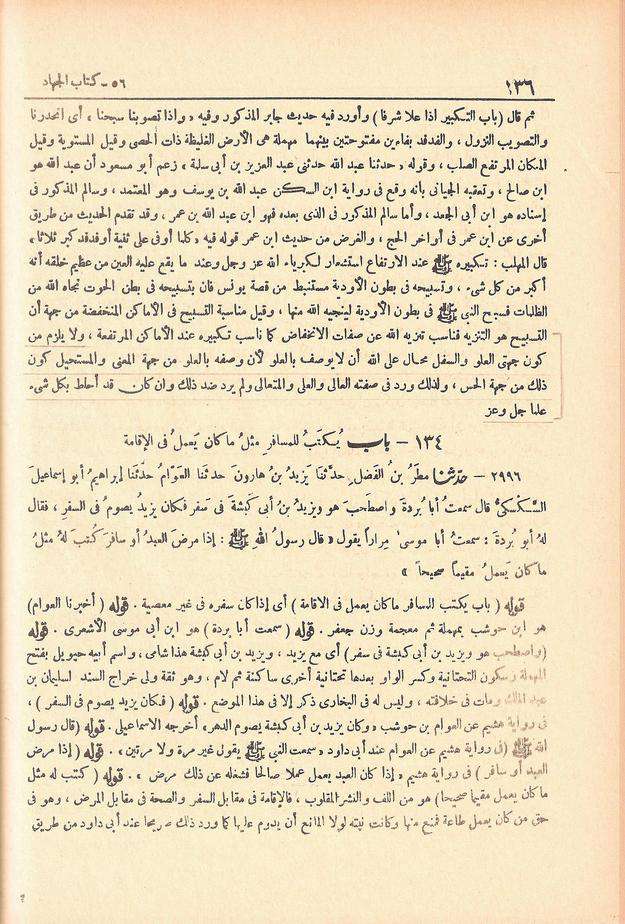 ١٣٦
٥٦ - كتاب الجهاد
ثم قال (باب التكبير اذا علا شرفا) وأورد فيه حديث جابر المذكور وفيه « واذا تصوبنا سبحنا ، أى انحدرنا
والتصويب النزول ، والفدفد بفاءين مفتوحتين بينهما مهملة هى الأرض الغليظة ذات الحصى وقيل المستوية وقيل
المكان المرتفع الصلب ، وقوله « حدثنا عبد الله حدثنى عبد العزيز بن أبى سلمة » زعم أبو مسعود أن عبد الله هو
ابن صالح ، وتعقبه الجيانى بأنه وقع فى رواية ابن السكن عبد الله بن يوسف وهو المعتمد ، وسالم المذكور فى
إسناده هو ابن أبى الجعد ، وأما سالم المذكور فى الذى بعده فهو ابن عبد الله بن عمر ، وقد تقدم الحديث من طريق
أخرى عن ابن عمر فى أواخر الحج ، والغرض من حديث ابن عمر قوله فيه « كلما أوفى على ثنية أو فدفد كبر ثلاثا »
قال المهلب : تكبيره ﷺ عند الارتفاع استشعار لكبرياء الله عز وجل وعند ما يقع عليه العين من عظيم خلقه أنه
أكبر من كل شىء ، وتسبيحه فى بطون الأودية مستنبط من قصة يونس فان بتسبيحه فى بطن الحوت نجاه الله من
الظلمات فسبح النبي ﷺ فى بطون الأودية لينجيه الله منها ، وقيل مناسبة التسبيح فى الأماكن المنخفضة من جهة أن
التسبيح هو التنزيه فناسب تنزيه الله عن صفات الانخفاض كما ناسب تكبيره عند الأماكن المرتفعة ، ولا يلزم من
كون جهتى العلو والسفل محال على الله أن لا يوصف بالعلو لأن وصفه بالعلو من جهة المعنى والمستحيل كون
ذلك من جهة الحس ، ولذلك ورد فى صفته العالى والعلى والمتعالى ولم يرد ضد ذلك وان كان قد أحاط بكل شىء
علما جل وعز
١٣٤ - باب يُكتَبُ للمسافرِ مثلُ ما كان يَعملُ فى الإقامة
٢٩٩٦ - حدّثنا مطَرُ بنُ الفَضلِ حدَّثَنا يَزيدُ بنُ هارونَ حدثنا العَوّامُ حدَّثَنا إبراهيمُ أبو إسماعيلَ
السَّكسَكىُّ قال سمعتُ أبا بُردةَ واصطَحبَ هو ويزيدُ بنُ أبى كَبشةَ فى سَفرٍ فكان يزيدُ يصومُ فى السفرِ ، فقال
لهُ أبو بُردةَ : سمعتُ أبا موسى مِراراً يقول « قال رسولُ اللهِ ﷺ : إذا مرِضَ العبدُ أو سافرَ كُتبَ لهُ مثلُ
ما كان يَعملُ مقيماً صحيحاً »
قوله ( باب يكتب للمسافر ما كان يعمل فى الاقامة ) أى إذا كان سفره فى غير معصية . قوله ( أخبرنا العوام)
هو ابن حوشب بمهملة ثم معجمة وزن جعفر . قوله ( سمعت أبا بردة ) هو ابن أبى موسى الأشعرى . قوله
(واصطحب هو ويزيد بن أبى كبشة فى سفر) أى مع يزيد ، ويزيد بن أبى كبشة هذا شامى ، واسم أبيه حيويل بفتح
المهملة وسكون التحتانية وكسر الواو بعدها تحتانية أخرى ساكنة ثم لام ، وهو ثقة ولى خراج السند لسليمان بن
عبد الملك ومات فى خلافته ، وليس له فى البخارى ذكر إلا فى هذا الموضع . قوله ( فكان يزيد يصوم فى السفر ) ،
فى رواية هشيم عن العوام بن حوشب « وكان يزيد بن أبى كبشة يصوم الدهر » أخرجه الاسماعيلى . قوله (قال رسول
الله ﷺ ) فى رواية هشيم عن العوام عند أبى داود « سمعت النبى ﷺ يقول غير مرة ولا مرتين » . قوله ( إذا مرض
العبد أو سافر ) فى رواية هشيم « إذا كان العبد يعمل عملا صالحا فشغله عن ذلك مرض » . قوله ( كتب له مثل
ما كان يعمل مقيما صحيحا) هو من اللف والنشر المقلوب ، فالاقامة فى مقابل السفر والصحة فى مقابل المرض ، وهو فى
حق من كان يعمل طاعة فمنع منها وكانت نيته لولا المانع أن يدوم عليها كما ورد ذلك صريحا عند أبى داود من طريق